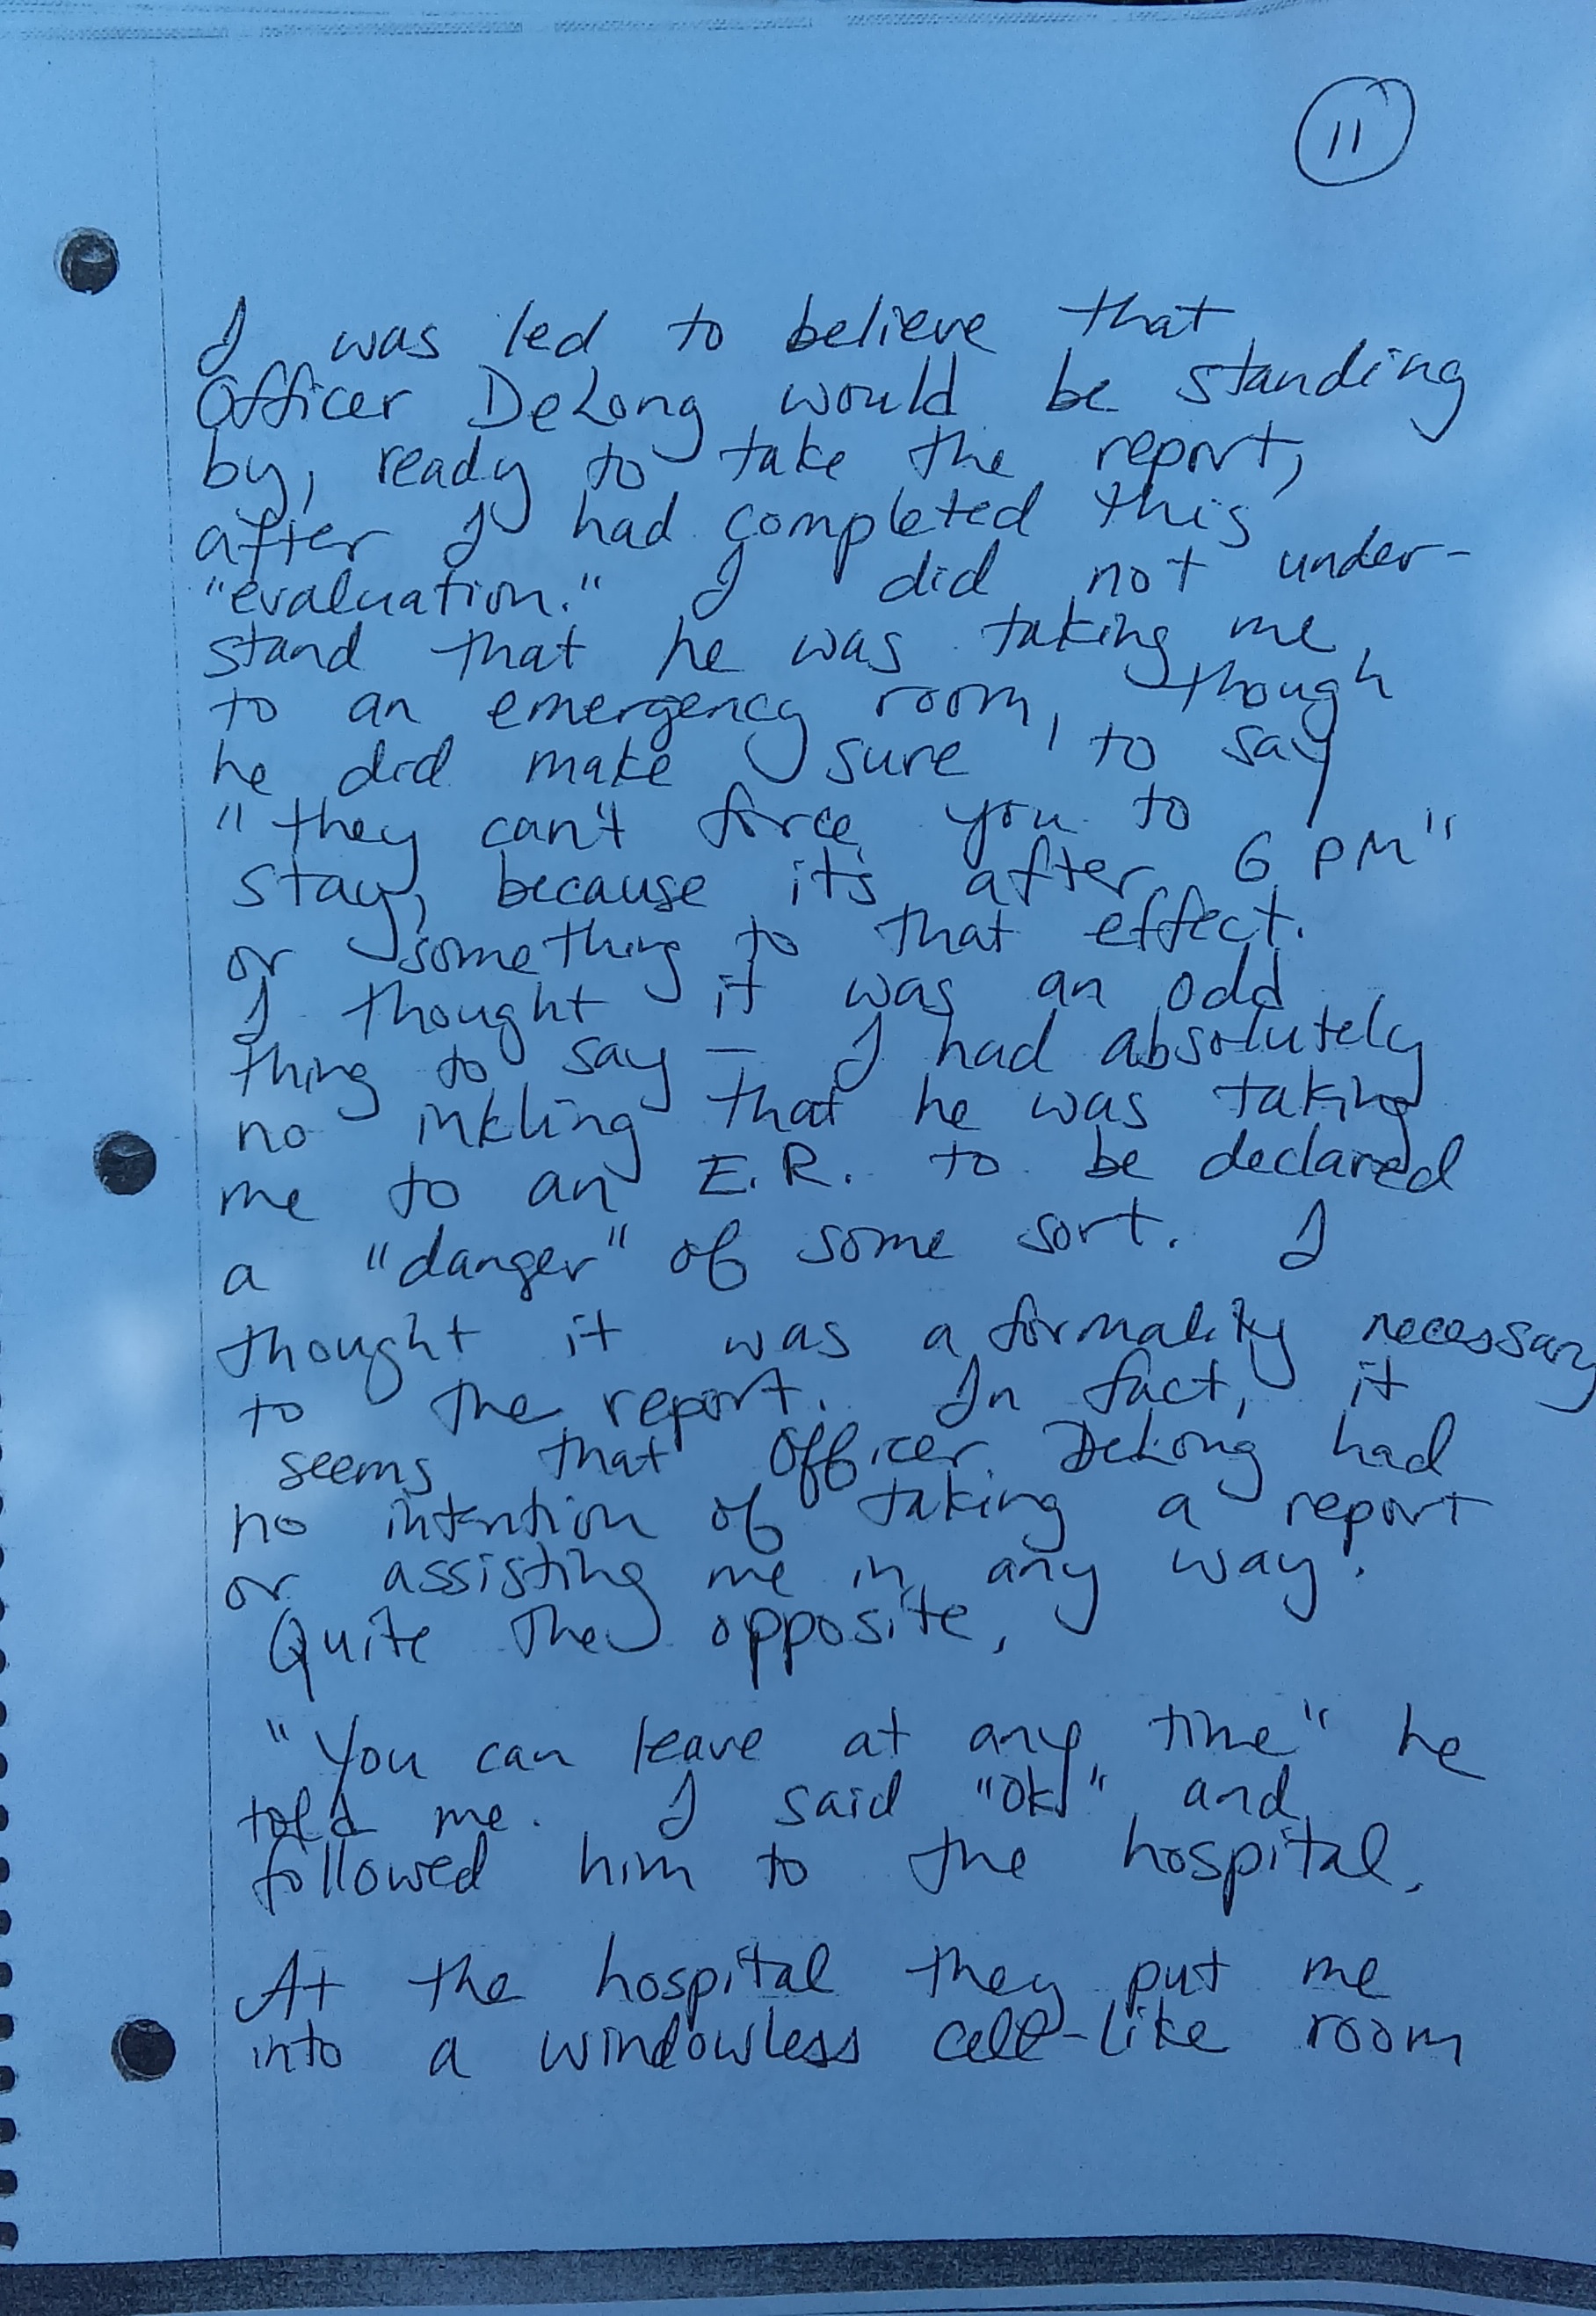 11
I was led to believe that
Officer DeLong would be standing
by, ready to take the report,
after I had completed this
"evaluation." I did not under-
stand that he was taking me
to an emergency room, though
he did make sure to say
"they can't force you to
stay, because it's after 6 PM"
or something to that effect.
I thought it was an odd
thing to say — I had absolutely
no inkling that he was taking
me to an E.R. to be declared
a "danger" of some sort. I
thought it was a formality necessary
to the report. In fact, it
seems that Officer DeLong had
no intention of taking a report
or assisting me in any way.
Quite the opposite.
"You can leave at any time" he
told me. I said "OK" and
followed him to the hospital.
At the hospital they put me
into a windowless cell-like room